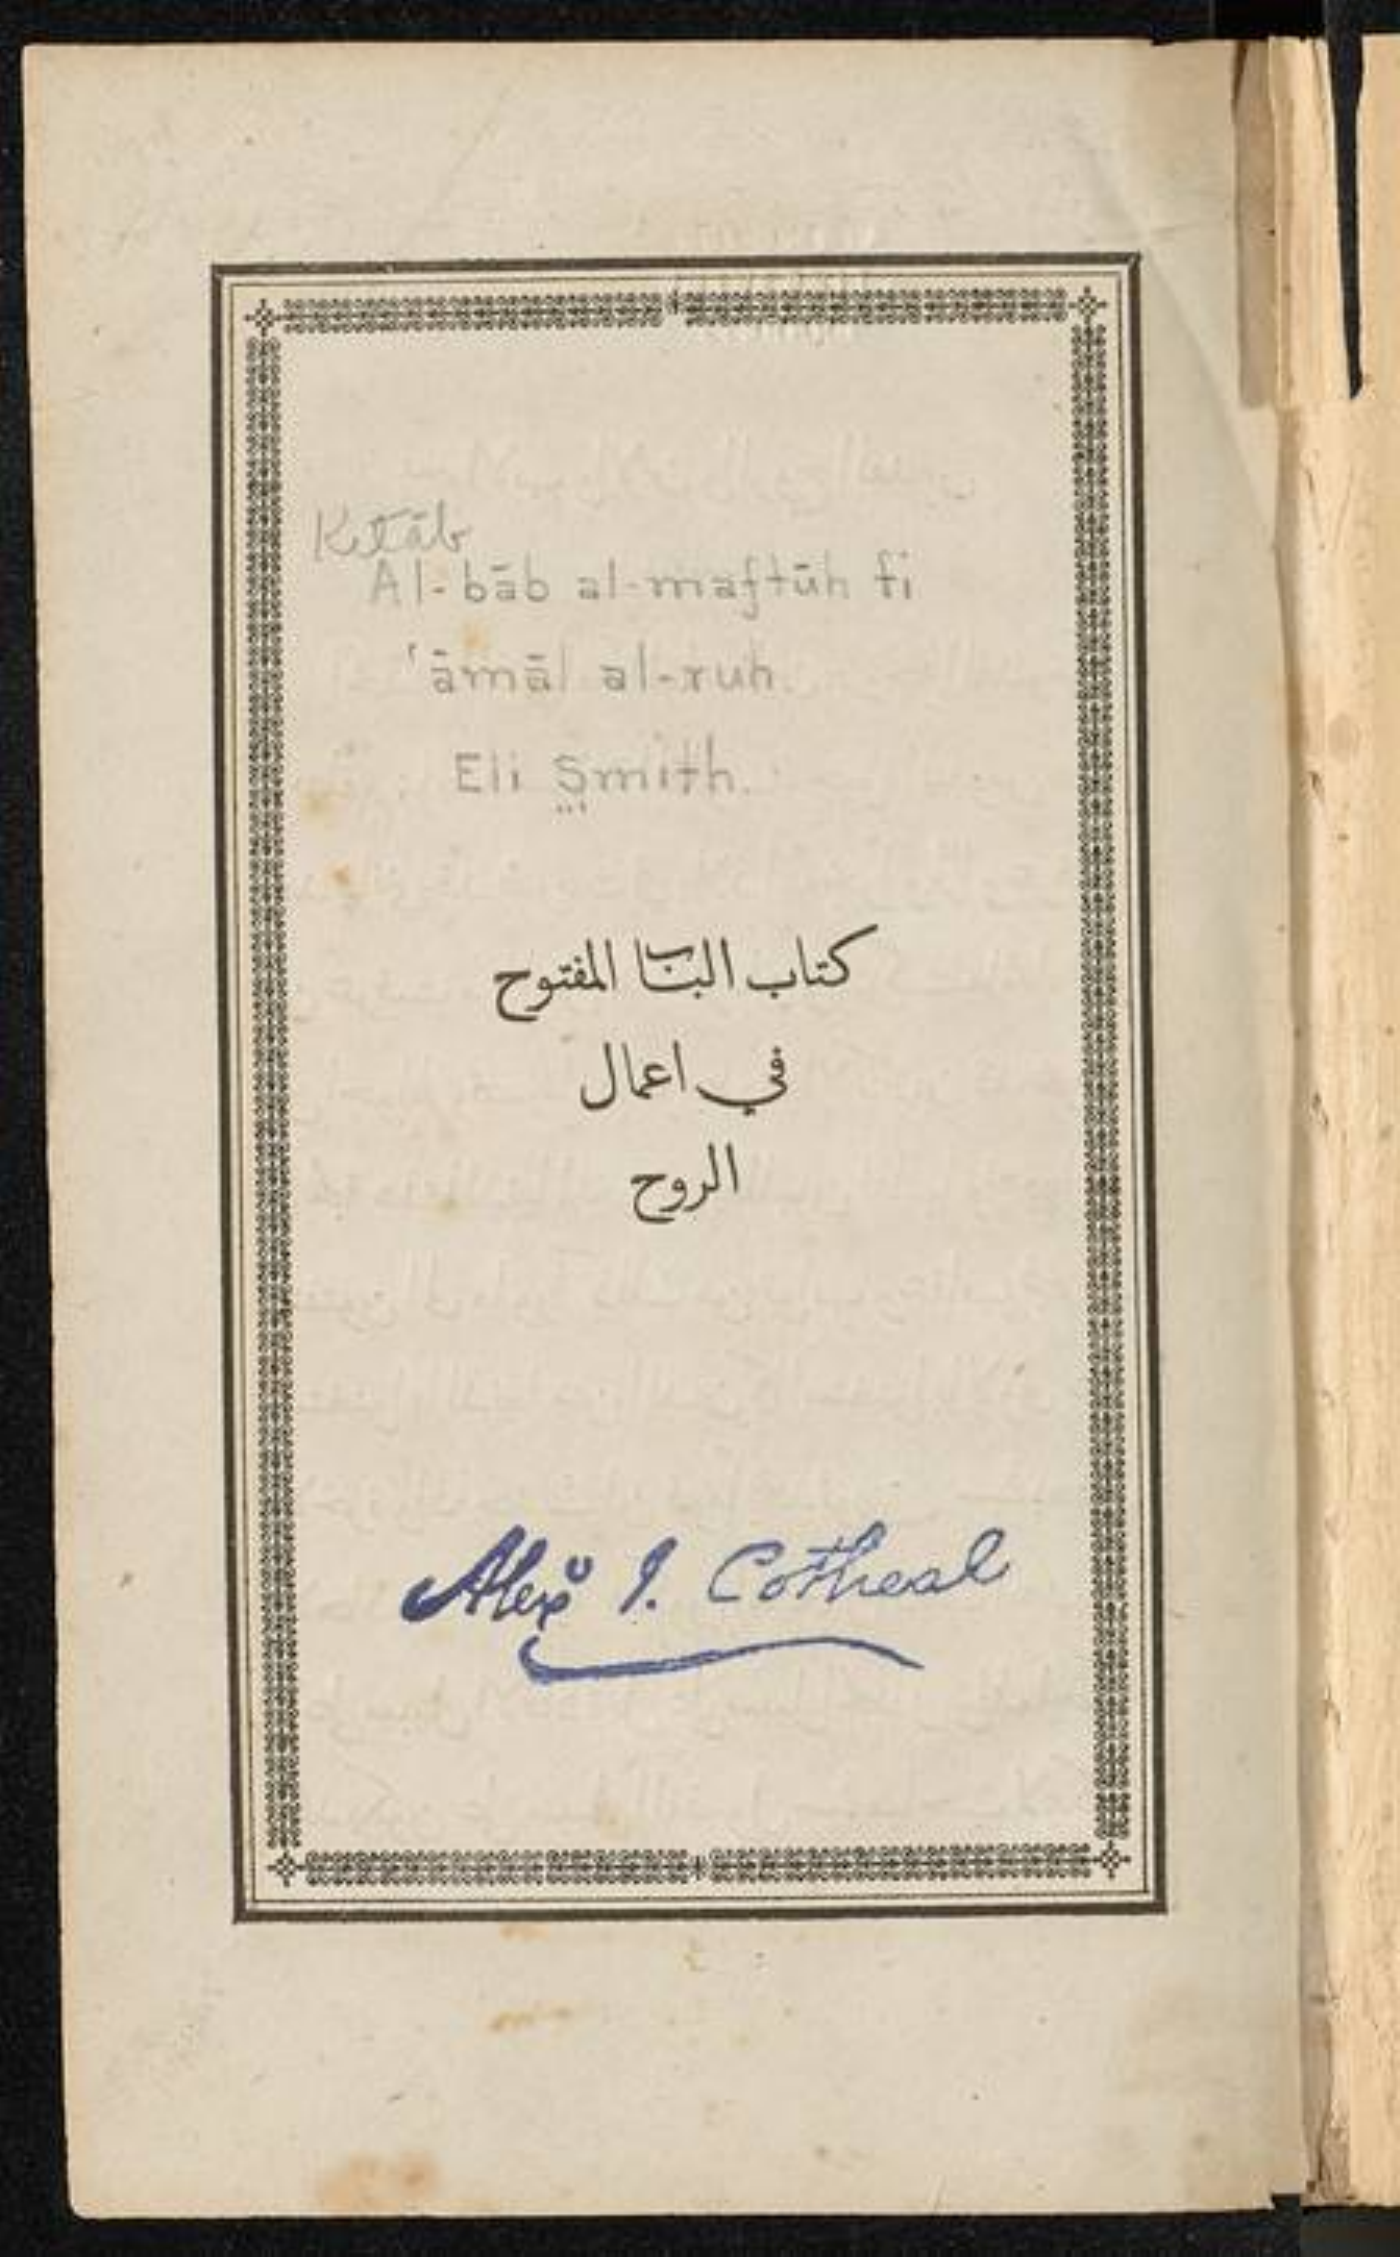 Kitāb
Al-bāb al-maftūh fi
'āmāl al-ruh.
Eli Smith.
كتاب الباب المفتوح
في اعمال
الروح
Alexʳ I. Cotheal